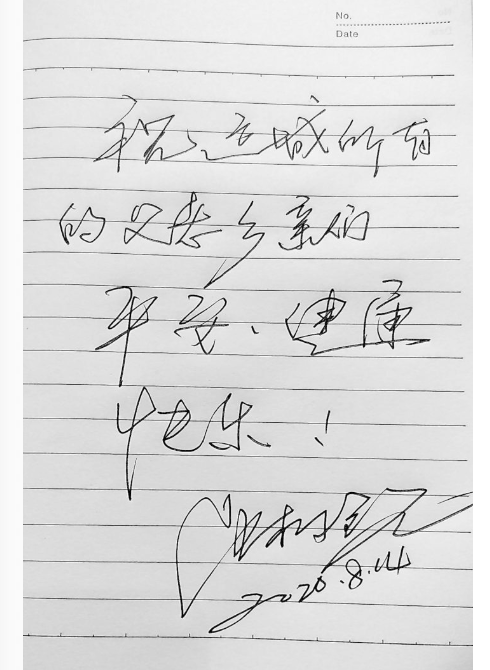 No.
Date
祝运城所有
的父老乡亲们
平安、健康
快乐!
2020.8.14